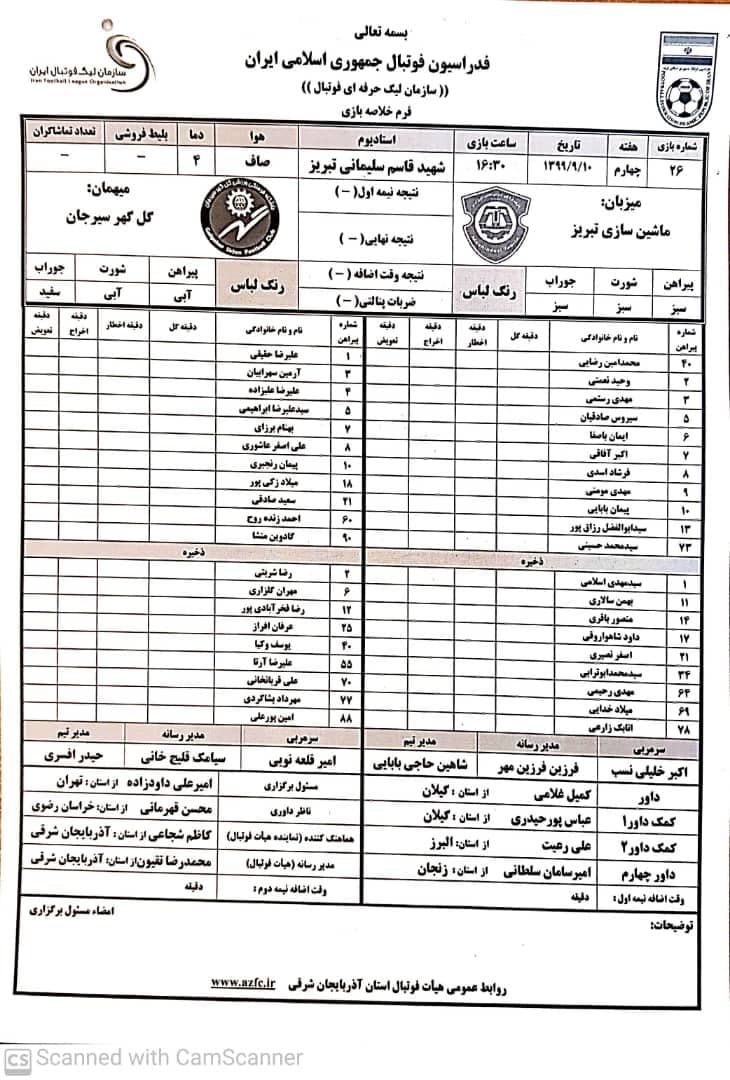 بسمه تعالی
فدراسیون فوتبال جمهوری اسلامی ایران
(( سازمان لیگ حرفه ای فوتبال ))
فرم خلاصه بازی
سازمان لیگ فوتبال ایران
Iran Football League Organization
شماره بازی هفته تاریخ ساعت بازی استادیوم هوا دما بلیط فروشی تعداد تماشاگران
۲۶ چهارم ۱۳۹۹/۹/۱۰ ۱۶:۳۰ شهید قاسم سلیمانی تبریز صاف ۴ – –
میزبان:
ماشین سازی تبریز
نتیجه نیمه اول(–)
نتیجه نهایی(–)
نتیجه وقت اضافه (–)
ضربات پنالتی(–)
میهمان:
گل گهر سیرجان
پیراهن شورت جوراب رنگ لباس
سبز سبز سبز
رنگ لباس پیراهن شورت جوراب
آبی آبی سفید
شماره پیراهن نام و نام خانوادگی دقیقه گل دقیقه اخطار دقیقه اخراج دقیقه تعویض
۴۰ محمدامین رضایی
۲ وحید نعمتی
۳ مهدی رستمی
۵ سیروس صادقیان
۶ ایمان باصفا
۷ اکبر آفاقی
۸ فرشاد اسدی
۹ مهدی مومنی
۱۰ پیمان بابایی
۱۳ سیدابوالفضل رزاق پور
۷۳ سیدمحمد حسینی
ذخیره
۱ سیدمهدی اسلامی
۱۱ بهمن سالاری
۱۴ منصور باقری
۱۷ داود شاهواروقی
۲۱ اصغر نصیری
۳۴ سیدمحمدابوترابی
۶۴ مهدی رحیمی
۶۹ میلاد خدایی
۷۸ اتابک زارعی
شماره پیراهن نام و نام خانوادگی دقیقه گل دقیقه اخطار دقیقه اخراج دقیقه تعویض
۱ علیرضا حقیقی
۳ آرمین سهرابیان
۴ علیرضا علیزاده
۵ سیدعلیرضا ابراهیمی
۷ بهنام برزای
۸ علی اصغر عاشوری
۱۰ پیمان رنجبری
۱۸ میلاد زکی پور
۲۱ سعید صادقی
۶۰ احمد زنده روح
۹۰ گادوین منشا
ذخیره
۲ رضا شربتی
۶ مهران گلزاری
۱۲ رضا فخرآبادی پور
۲۵ عرفان افراز
۴۰ یوسف وکیا
۵۵ علیرضا آرتا
۷۰ علی قربانخانی
۷۷ مهرداد بشاگردی
۸۸ امین پورعلی
سرمربی مدیر رسانه مدیر تیم
اکبر خلیلی نسب فرزین فرزین مهر شاهین حاجی بابایی
سرمربی مدیر رسانه مدیر تیم
امیر قلعه نویی سیامک قلیچ خانی حیدر افسری
داور کمیل غلامی از استان: گیلان
کمک داور۱ عباس پورحیدری از استان: گیلان
کمک داور۲ علی رعیت از استان: البرز
داور چهارم امیرسامان سلطانی از استان: زنجان
وقت اضافه نیمه اول: دقیقه
مسئول برگزاری امیرعلی داودزاده از استان: تهران
ناظر داوری محسن قهرمانی از استان: خراسان رضوی
هماهنگ کننده (نماینده هیات فوتبال) کاظم شجاعی از استان: آذربایجان شرقی
مدیر رسانه (هیات فوتبال) محمدرضا نقیون از استان: آذربایجان شرقی
وقت اضافه نیمه دوم: دقیقه
توضیحات:
امضاء مسئول برگزاری
روابط عمومی هیات فوتبال استان آذربایجان شرقی www.azfc.ir
CS Scanned with CamScanner